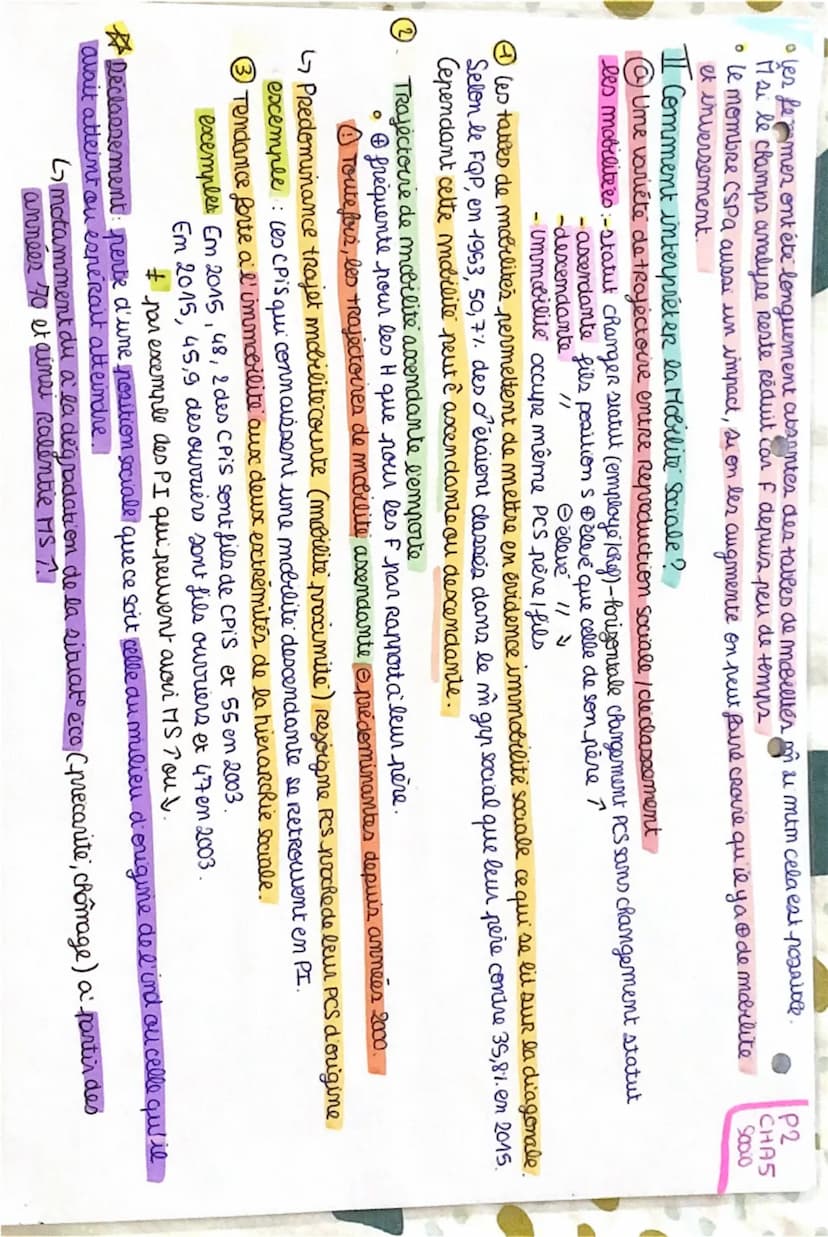 P2
CHA5
Socio
• Les femmes ont été longuement absentes des tables de mobilités m̂ si mtm cela est possible.
M si le champs analyse reste réduit car F depuis peu de temps
• le nombre CSPa aussi un impact, si on les augmente on peut faire croire qu'il y a ⊕ de mobilité
et inversement.
II Comment interpréter la Mobilité Sociale ?
ⓐ Une variété de trajectoire entre Reproduction sociale / déclassement
les mobilitées : - statut changer statut (employé / chef) - horizontale changement PCS sans changement statut
- ascendante fils position s ⊕ élevé que celle de son père ↗
- descendante // ⊖ élevé // ↘
- immobilité occupe même PCS père / fils
① les tables de mobilités permettent de mettre en évidence immobilité sociale ce qui se lit sur la diagonale.
Selon le FQP, en 1953, 50,7% des ♂ étaient classés dans le m̂ grp social que leur père contre 39,8% en 2015.
Cependant cette mobilité peut ê ascendante ou descendante.
② Trajectoire de mobilité ascendante l'emporte
• ⊕ fréquente pour les H que pour les F par rapport à leur père.
ⓘ Toutefois, les trajectoires de mobilité ascendante ⊖ prédominantes depuis années 2000.
↳ Prédominance trajet mobilité courte (mobilité proximité) rejoigne PCS proche de leur PCS d'origine
exemple : les CPIS qui connaissent une mobilité descendante se retrouvent en PI.
③ Tendance forte à l'immobilité aux deux extrémités de la hiérarchie sociale.
exemples En 2015, 48,2 des CPIS sont fils de CPIS et 55 en 2003.
En 2015, 45,9 des ouvriers sont fils ouvriers et 47 en 2003.
≠ par exemple des PI qui peuvent avoir MS ↗ ou ↘.
☆ Déclassement : perte d'une position sociale que ce soit celle du milieu d'origine de l'ind ou celle qu'il
avait atteint ou espérait atteindre.
↳ notamment du à la dégradation de la situat° éco (précarité, chômage) à partir des
années 70 et ainsi ralentie MS ↗.